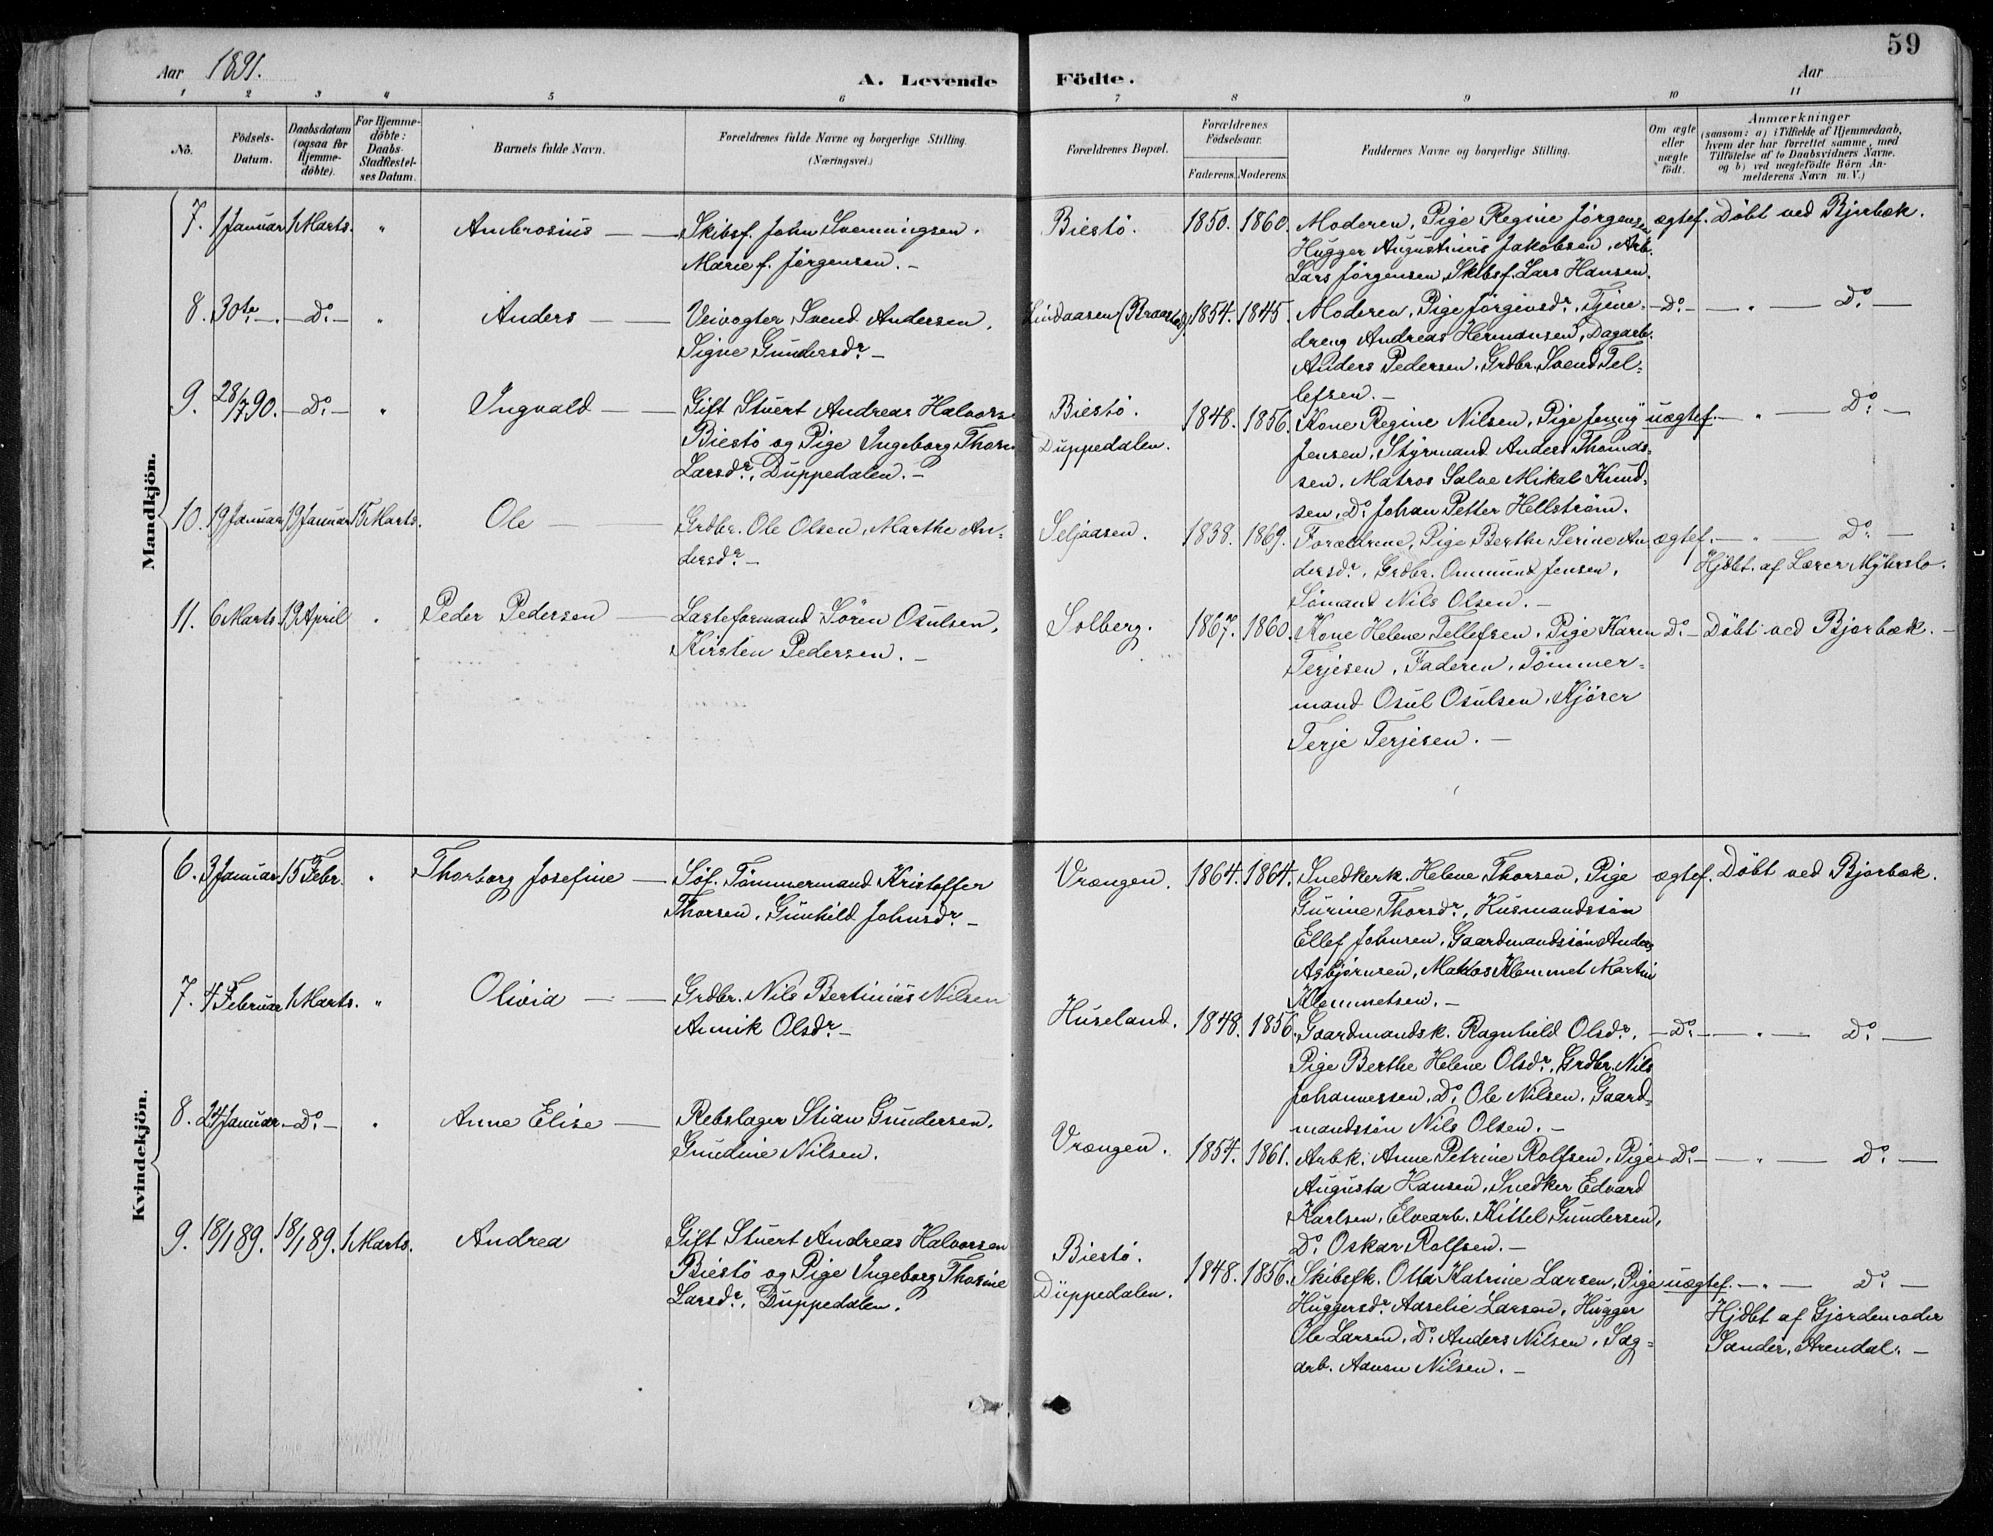 59
Aar 1891.
A. Levende Födte.
Aar
1 2 3 4 5 6 7 8 9 10 11
No.
Födsels-Datum.
Daabsdatum (ogsaa for Hjemme-döbte).
For Hjemme-döbte: Daabs-Stadfæstel-ses Datum.
Barnets fulde Navn.
Forældrenes fulde Navne og borgerlige Stilling. (Næringsvei.)
Forældrenes Bopæl.
Forældrenes Födselsaar.
Faderens. Moderens.
Faddernes Navne og borgerlige Stilling.
Om ægte eller uægte födt.
Anmærkninger
(saasom: a) i Tilfælde af Hjemmedaab,
hvem der har forrettet samme, med
Tilföielse af to Daabsvidners Navne.
og b) ved uægtefödte Börn An-
melderens Navn m. V.)
Mandkjön.
7. 1 Januar 1 Marts. " Ambrosius — Skibsf. John Svenningsen. Biestö. 1850. 1860. Moderen, Pige Regine Jørgensen ægtef. Döbt ved Bjorbæk.
Marie f. Jørgensen. — Hugger Augustinus Jakobsen, Arb.
Lars Jørgensen, Skibsf. Lars Hansen.
8. 30te —. — Do — " Anders — Veivogter Svend Andersen, Lindaasen (Braastad). 1854. 1845. Moderen, Pige Jørginsdr, Tjene- — Do — — " — Do —
Signe Gundersdr — dreng Andreas Hermansen, Dagarb.
Anders Pedersen, Grdbr. Svend Tel-
lefsen. —
9. 28/7 90. — Do — " Ingvald — Gift Stuert Andreas Halvorsen Biestö. 1848. 1856. Kone Regine Nilsen, Pige Jenny uægtef. — " — Do —
Biestö og Pige Ingeborg Thorine Duppedalen. Jensen, Styrmand Anders Thomas-
Larsdr, Duppedalen. — sen, Matros Salve Mikal Knud-
sen, Do Johan Petter Hellstrøm.
10. 19 Januar 19 Januar 15 Marts. Ole — Grdbr. Ole Olsen, Marthe An- Seljaasen. 1838. 1869. Forældrene, Pige Berthe Serine An ægtef. — " — Do —
dersdr — dersdr, Grdbr. Ommund Jensen, Hjdbt. af Lærer Myhrslo.
Sömand Nils Olsen. —
11. 6 Marts. 19 April " Peder Pedersen — Lasteformand Sören Osulsen, Solberg. 1867. 1860. Kone Helene Tellefsen, Pige Karen Do — Döbt ved Bjorbæk. —
Kirsten Pedersen. — Terjesen, Faderen, Tömmer-
mand Osul Osulsen, Kjörer
Terje Terjesen. —
Kvindekjön.
6. 3 Januar. 15 Febr. " Thorborg Josefine — Söf. Tömmermand Kristoffer Vrængen. 1864. 1864. Snedkerk. Helene Thorsen, Pige ægtef. Döbt ved Bjorbæk.
Thorsen, Gunhild Johnsdr — Gurine Thorsdr, Husmandssön
Ellef Johnsen, Gaardmandssön Anders
Asbjørnsen, Matros Klemmet Martin
Klemmetsen. —
7. 4 Februar 1 Marts. " Olivia — Grdbr. Nils Bertinius Nilsen Huseland. 1848. 1856. Gaardmandsk. Ragnhild Olsdr, — Do — — " — Do —
Annik Olsdr — Pige Berthe Helene Olsdr, Grdbr. Nils
Johannessen, Do Ole Nilsen, Gaard-
mandssön Nils Olsen. —
8. 24 Januar. — Do — " Anne Elise — Rebslager Stian Gundersen. Vrængen. 1854. 1861. Arbk. Anne Petrine Rolfsen, Pige — Do — — " — Do —
Gundine Nilsen. Augusta Hansen, Snedker Edvard
Karlsen, Elvearb. Kittel Gundersen,
Do Oskar Rolfsen. —
9. 18/1 89. 18/1 89. 1 Marts. Andrea Gift Stuert Andreas Halvorsen Biestö. 1848. 1856. Skibsfk. Olla Katrine Larsen, Pige uægtef. — " — Do —
Biestö og Pige Ingeborg Thorine Duppedalen. Huggersdr Aaselie Larsen, Hugger Hjdbt af Gjordemoder
Larsdr, Duppedalen. Ole Larsen, Do Anders Nilsen, Sag- Sander, Arendal. —
arb. Aanon Nilsen. —